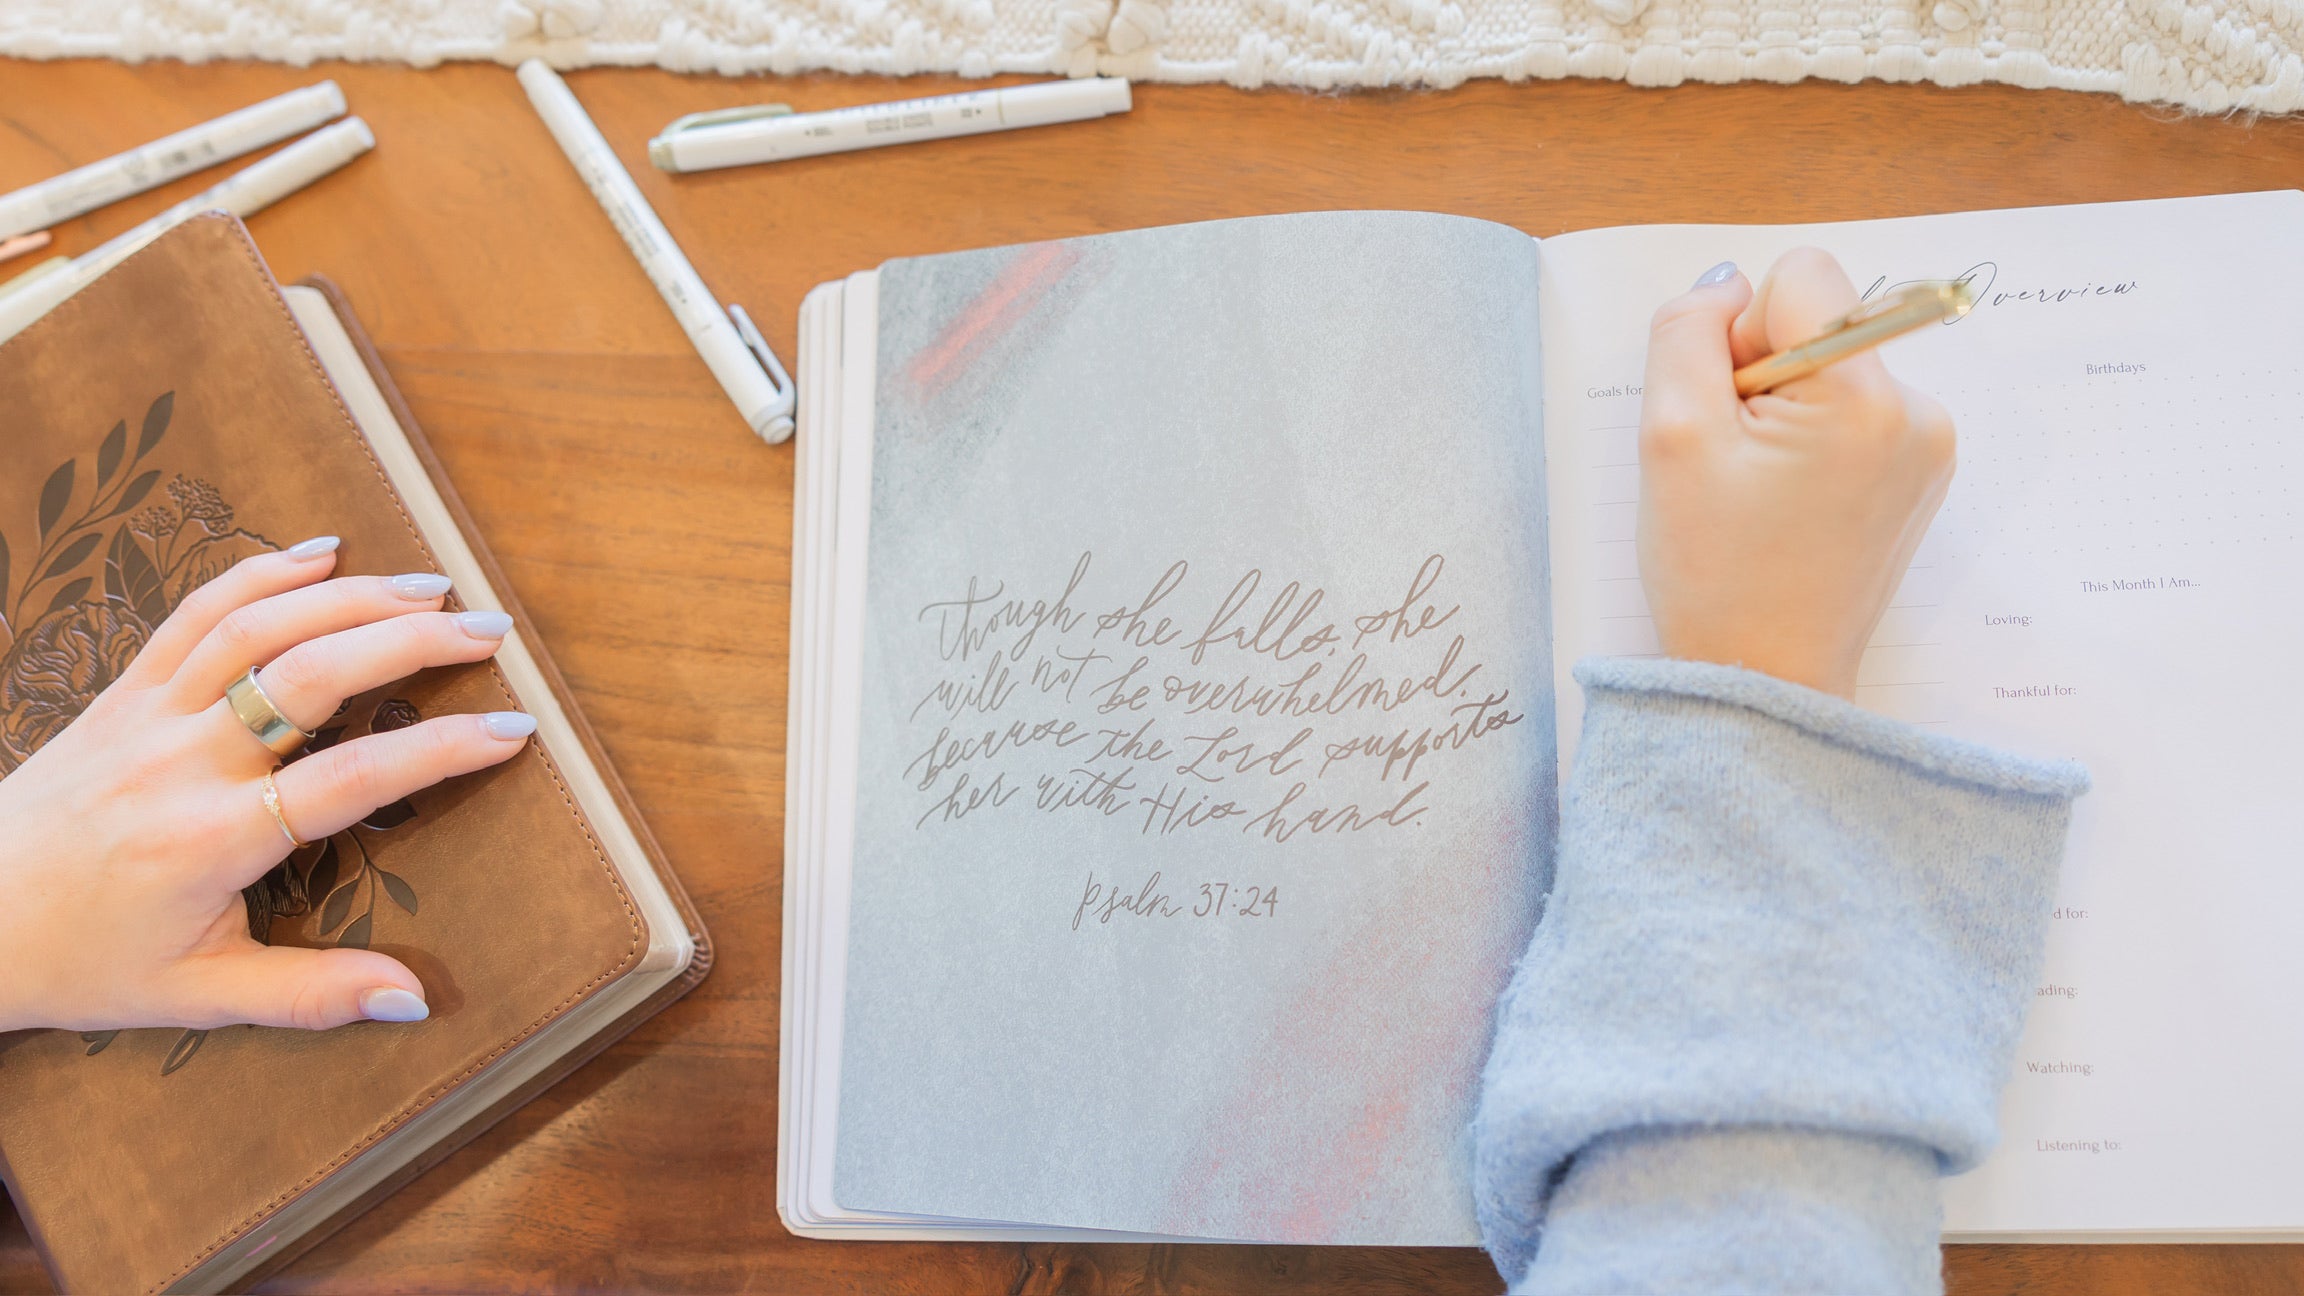 though she falls, she
will not be overwhelmed,
because the Lord supports
her with His hand.
Psalm 37:24
Overview
Goals for
Birthdays
This Month I Am...
Loving:
Thankful for:
for:
Watching:
Listening to: